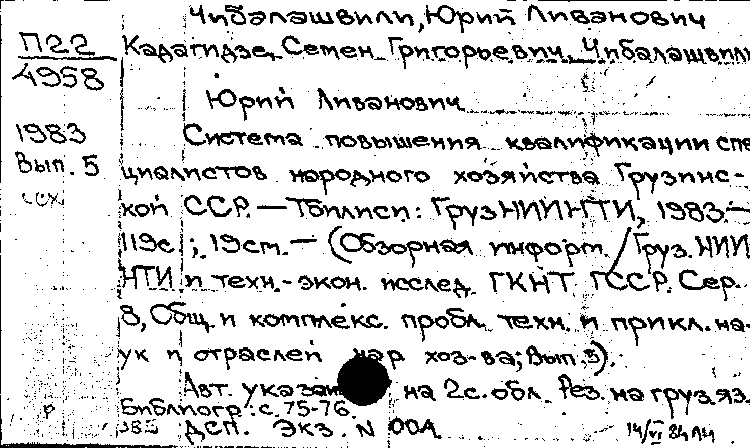 Чибалашвили, Юрий Ливанович
П22
4958
Кадагидзе, Семен Григорьевич, Чибалашвили
Юрий Ливанович
1983
Вып. 5
Система повышения квалификации спе
циалистов народного хозяйства Грузинс-
кой ССР. — Тбилиси: ГрузНИИНТИ, 1983. —
119с.; 19см. — (Обзорная информ. / Груз. НИИ
НТИ и техн.-экон. исслед. ГКНТ ГССР. Сер.
8, Общ. и комплекс. пробл. техн. и прикл. на-
ук и отраслей нар хоз-ва; Вып. 5).
Авт. указан на 2 с. обл. Рез. на груз. яз.
Библиогр.: с. 75-76.
ДСП. Экз. N 004